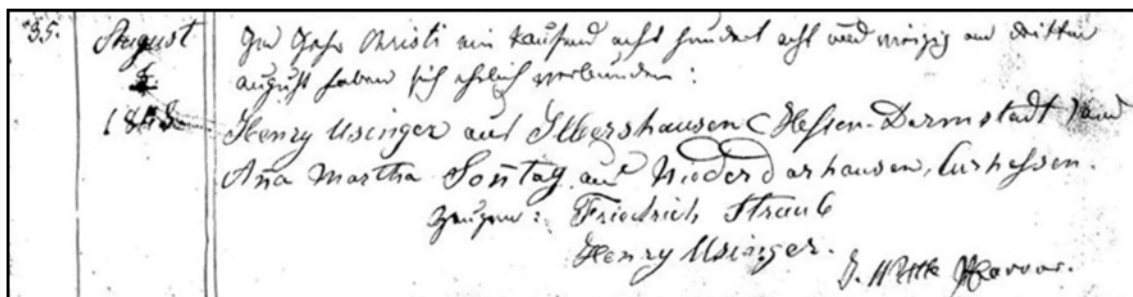 35.
August
3.
1848
Im Jahr Christi ein Tausend acht hundert acht und vierzig am dritten
august haben sich ehelich verbunden:
Henry Usinger aus Ilbershausen (Hessen-Darmstadt) und
Aña Martha Soñtag aus Niederdorhausen, Curhessen.
Zeugen: Friedrich Straub
Henry Usinger.
Pfarrer.